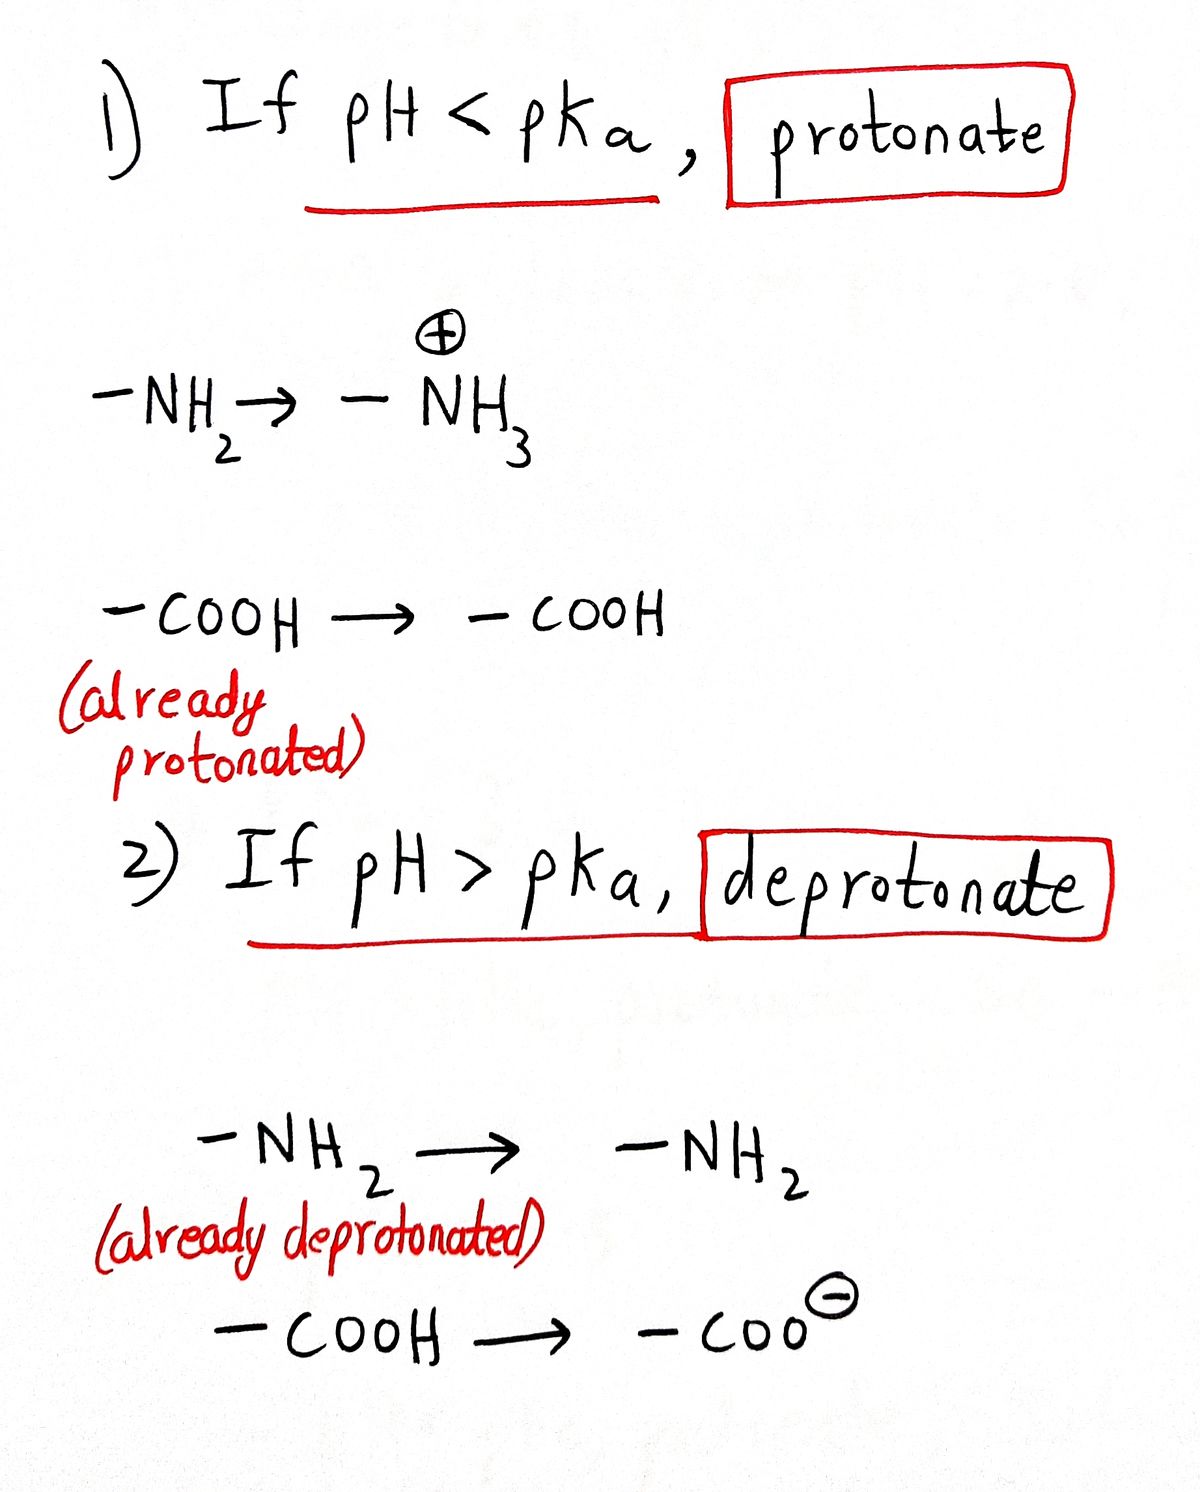 1) If pH < pKa, protonate
⊕
-NH₂ → - NH₃
-COOH → - COOH
(already
protonated)
2) If pH > pKa, deprotonate
-NH₂ → -NH₂
(already deprotonated)
-COOH → -COO⊖